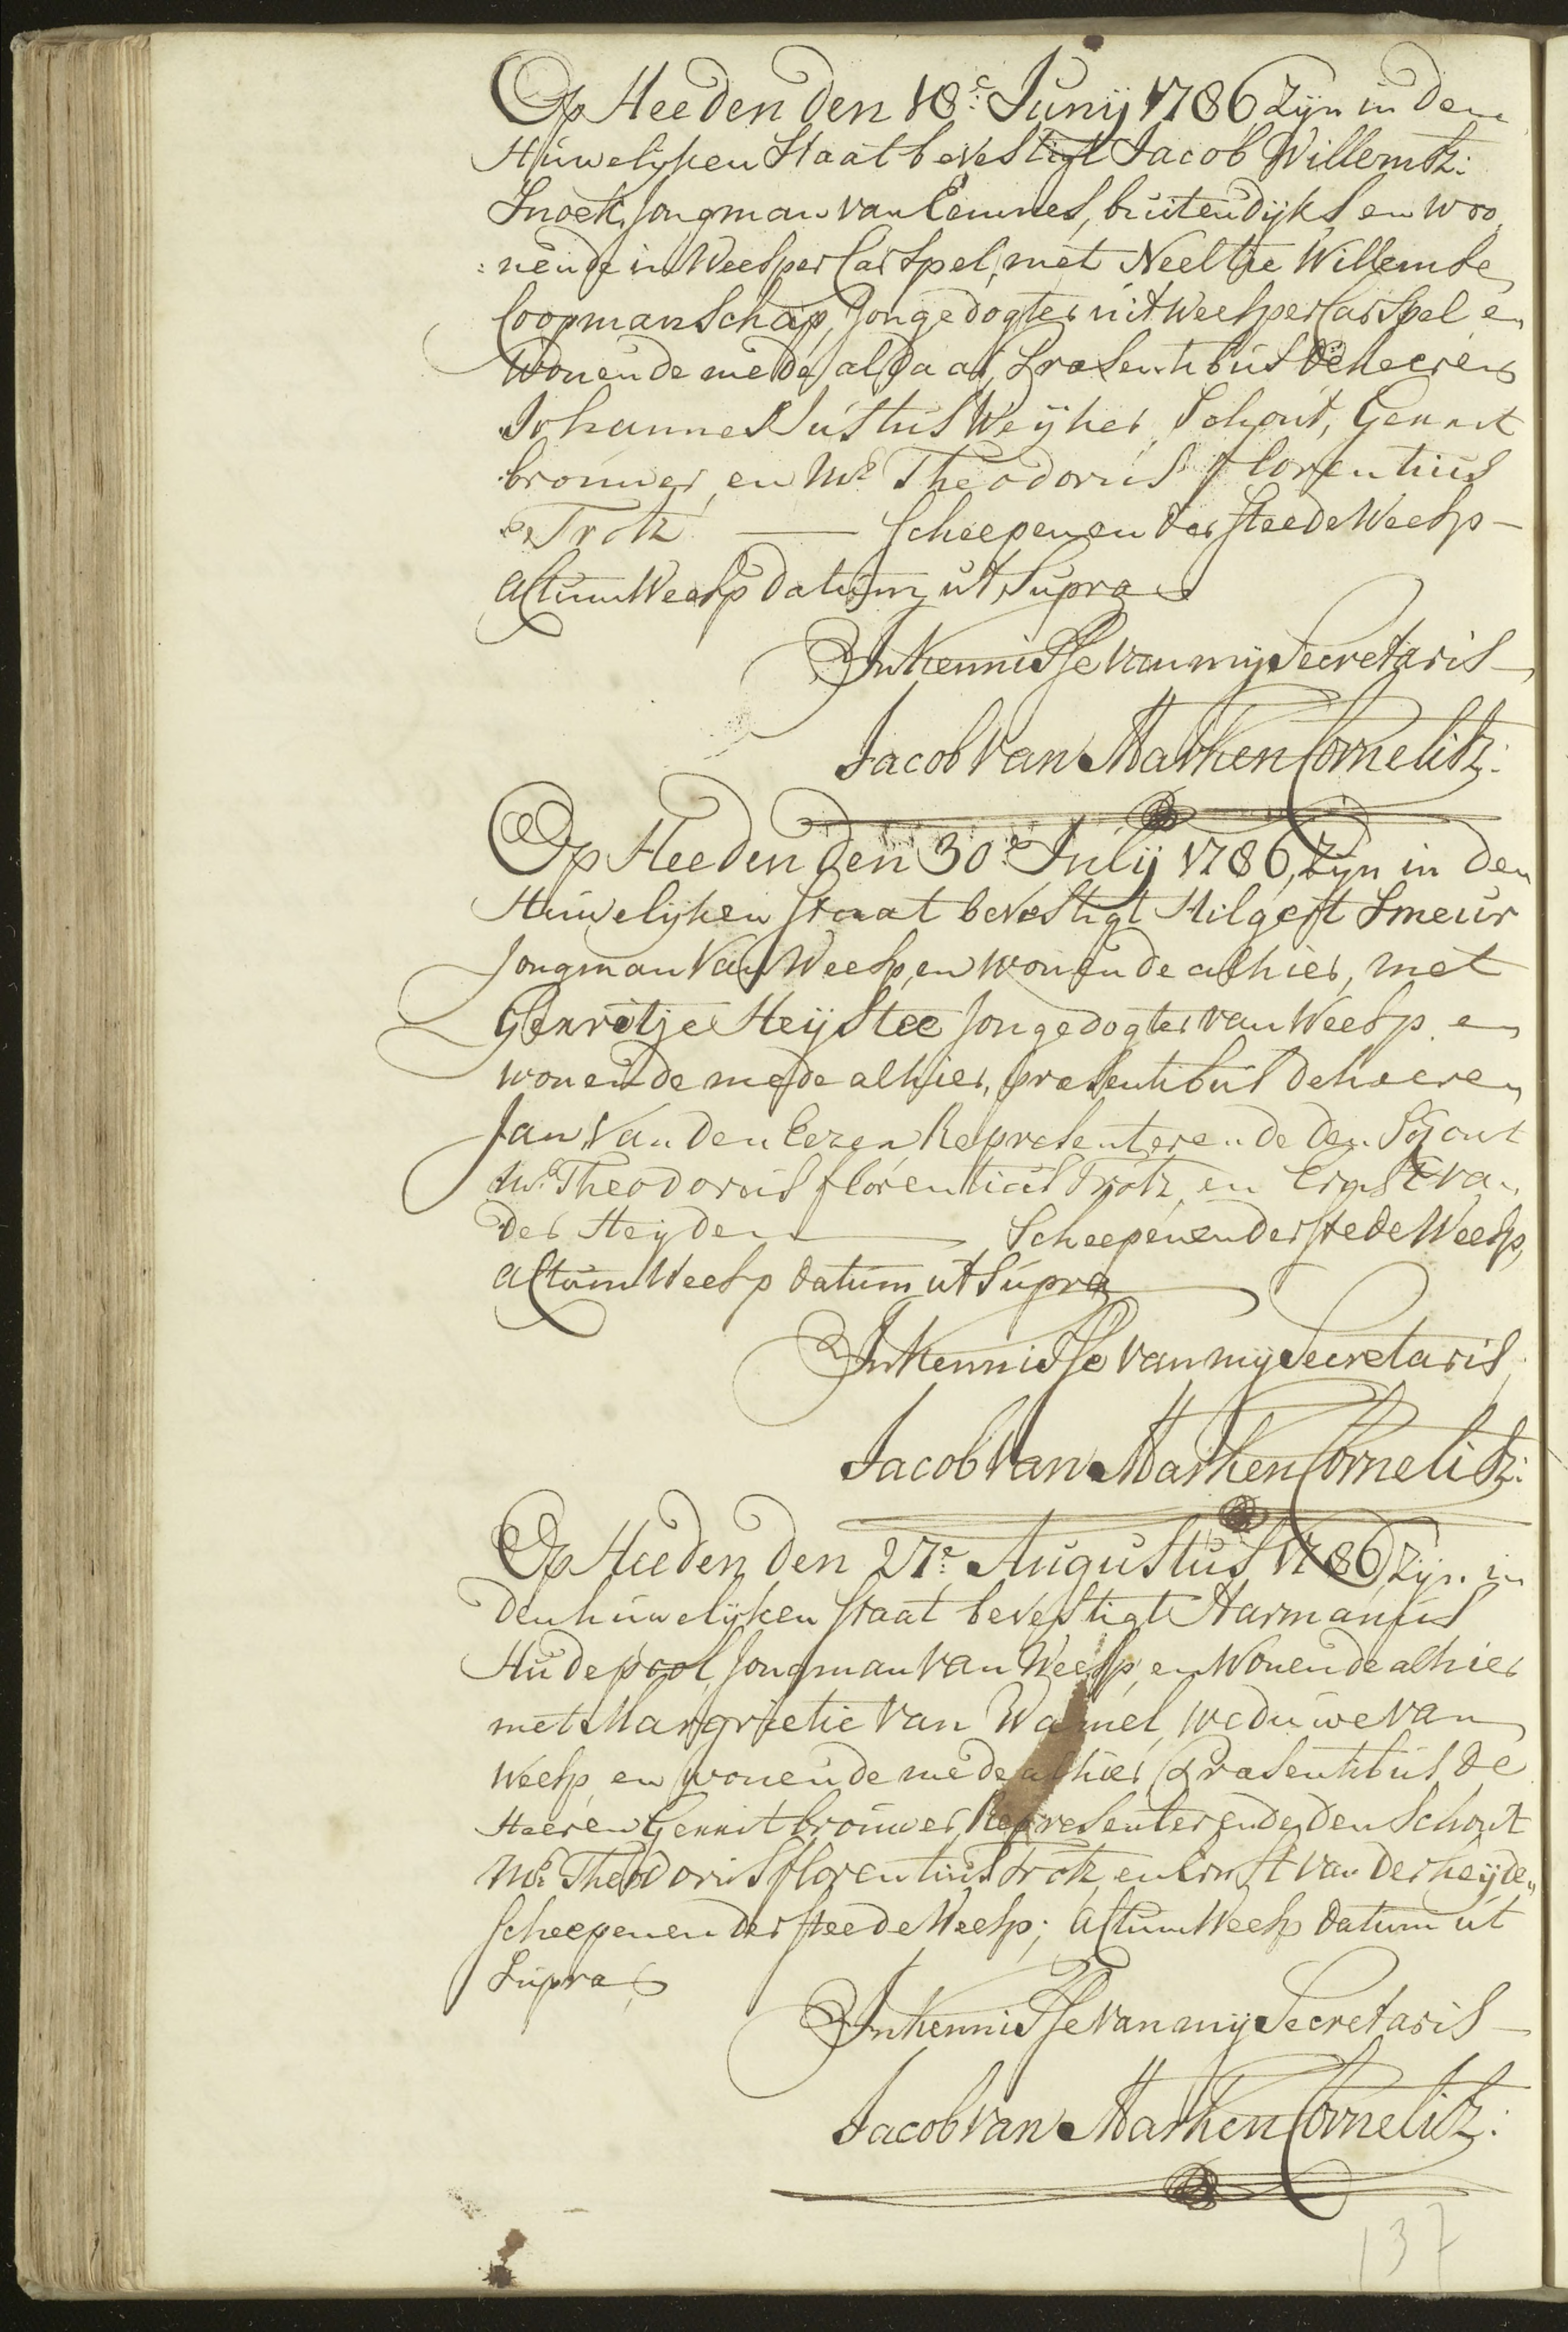 Op Heeden den 18e: Junij 1786 Zijn in den
Huwelijken Staat bevestigt Jacob Willemsz:
Snoek, Jongman van Eemnes, buitendijks, en woo„
:nende in Weesper Carspel, met Neeltje Willemse
Coopmanschap, Jonge dogter uit Weesper Carspel en
Wonende mede aldaar, Præsentibus de heeren
Johannes Justus Weijher, Schout, Gerrit
brouwer, en Mr. Theodorus Florentius
Trotz —— Scheepenen der steede Weesp —
Actum Weesp datum ut Supra
In Kennisse van mij Secretaris —
Jacob van Marken Cornelisz:
Op Heeden den 30e: Julij 1786, Zijn in den
Huwelijken Staat bevestigt Hilgert Smeur
Jongman van Weesp, en wonende alhier, met
Gerritje Heijstee Jonge dogter van Weesp en
wonende mede alhier, præsentibus de heeren
Jan van den Representerende den Schout
Mr. Theodorus florentius Trotz, en Ernst van
der Heyden —— Scheepenen der stede Weesp,
Actum Weesp datum ut Supra
In Kennisse van mij Secretaris,
Jacob van Marken Cornelisz:
Op Heeden den 27e: Augustus 1786 Zijn in
den huwelijken staat bevestigt Harmanus
Hudepool, Jongman van Weesp, en Wonende alhier
met Margrietie van Wamel, weduwe van
Weesp, en wonende mede alhier, Præsentibus de
Heeren Gerrit brouwer, Representerende den Schout
Mr. Theodorus florentius Trotz, en Ernst van der heijden
Scheepenen der steede Weesp; Actum Weesp datum ut
Supra
In Kennisse van mij Secretaris —
Jacob van Marken Cornelisz:
137